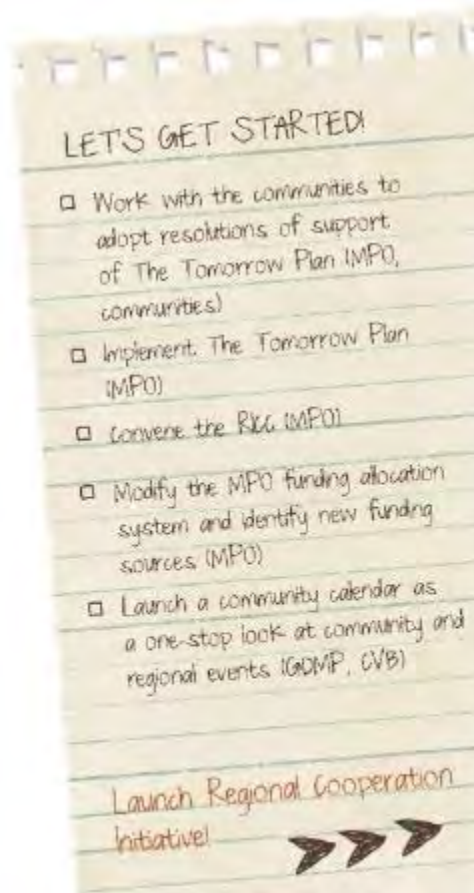 LET'S GET STARTED!
Work with the communities to
adopt resolutions of support
of The Tomorrow Plan (MPO,
communities)
Implement The Tomorrow Plan
(MPO)
Convene the (MPO)
Modify the MPO funding allocation
system and identify new funding
sources (MPO)
Launch a community calendar as
a one-stop look at community and
regional events (GDMP, CVB)
Launch Regional Cooperation
Initiative!